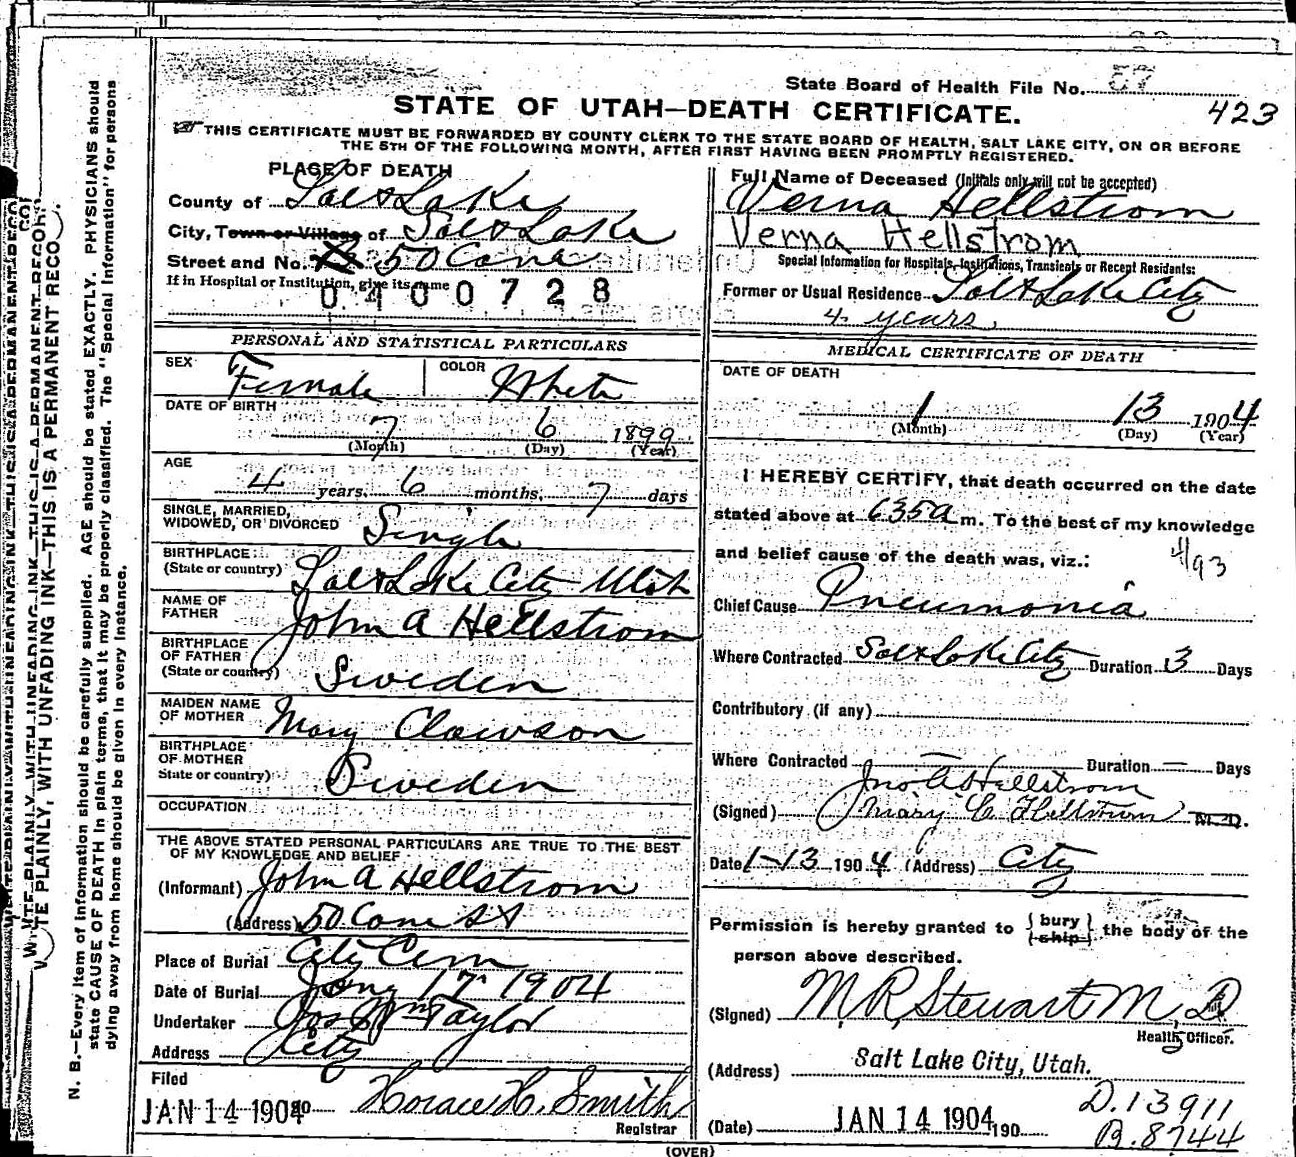 State Board of Health File No. 57
423
STATE OF UTAH—DEATH CERTIFICATE.
THIS CERTIFICATE MUST BE FORWARDED BY COUNTY CLERK TO THE STATE BOARD OF HEALTH, SALT LAKE CITY, ON OR BEFORE
THE 5TH OF THE FOLLOWING MONTH, AFTER FIRST HAVING BEEN PROMPTLY REGISTERED.
PLACE OF DEATH
County of Salt Lake
City, Town or Village of Salt Lake
Street and No. 50 Cane
If in Hospital or Institution, give its name
0400728
Full Name of Deceased (Initials only will not be accepted)
Verna Hellstrom
Verna Hellstrom
Special Information for Hospitals, Institutions, Transients or Recent Residents:
Former or Usual Residence Salt Lake City
4 years
PERSONAL AND STATISTICAL PARTICULARS
SEX Female COLOR White
DATE OF BIRTH
7 6 1899
(Month) (Day) (Year)
AGE
4 years, 6 months, 7 days
SINGLE, MARRIED,
WIDOWED, OR DIVORCED Single
BIRTHPLACE
(State or country) Salt Lake City Utah
NAME OF
FATHER John A Hellstrom
BIRTHPLACE
OF FATHER
(State or country) Sweden
MAIDEN NAME
OF MOTHER Mary Clawson
BIRTHPLACE
OF MOTHER
State or country) Sweden
OCCUPATION
THE ABOVE STATED PERSONAL PARTICULARS ARE TRUE TO THE BEST
OF MY KNOWLEDGE AND BELIEF
(Informant) John A Hellstrom
(Address) 50 Cane St
Place of Burial City Cem
Date of Burial Jany 17 1904
Undertaker Jos Wm Taylor
Address City
Filed
JAN 14 1904 190 Horace H. Smith
Registrar
MEDICAL CERTIFICATE OF DEATH
DATE OF DEATH
1 13 1904
(Month) (Day) (Year)
I HEREBY CERTIFY, that death occurred on the date
stated above at 635a m. To the best of my knowledge
and belief cause of the death was, viz.: 4/93
Chief Cause Pneumonia
Where Contracted Salt Lake City Duration 3 Days
Contributory (if any)
Where Contracted — Duration — Days
Jno. A Hellstrom
(Signed) Mary C Hellstrom M.D.
Date 1-13 1904 (Address) City
Permission is hereby granted to { bury } the body of the
{ ship }
person above described.
(Signed) M. R. Stewart M. D.
Health Officer.
(Address) Salt Lake City, Utah.
(Date) JAN 14 1904 190
D. 13911
B. 8744
(OVER)
N. B.—Every item of information should be carefully supplied. AGE should be stated EXACTLY. PHYSICIANS should
state CAUSE OF DEATH in plain terms, that it may be properly classified. The "Special Information" for persons
dying away from home should be given in every instance.